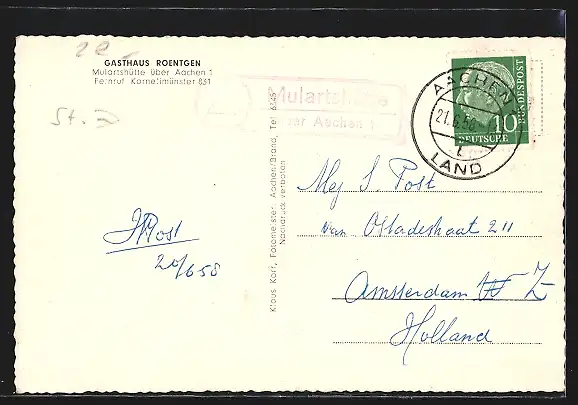 GASTHAUS ROENTGEN
Mulartshütte über Aachen 1
Fernruf Kornelimünster 831
Mulartshütte
über Aachen 1
AACHEN
21.6.58
LAND
10
DEUTSCHE BUNDESPOST
St.
Klaus Korr, Fotomeister, Aachen/Brand, Tel. 6345
Nachdruck verboten
Mej S. Post
van Ostadestraat 211
Amsterdam Z
Holland
Post
20/6 58